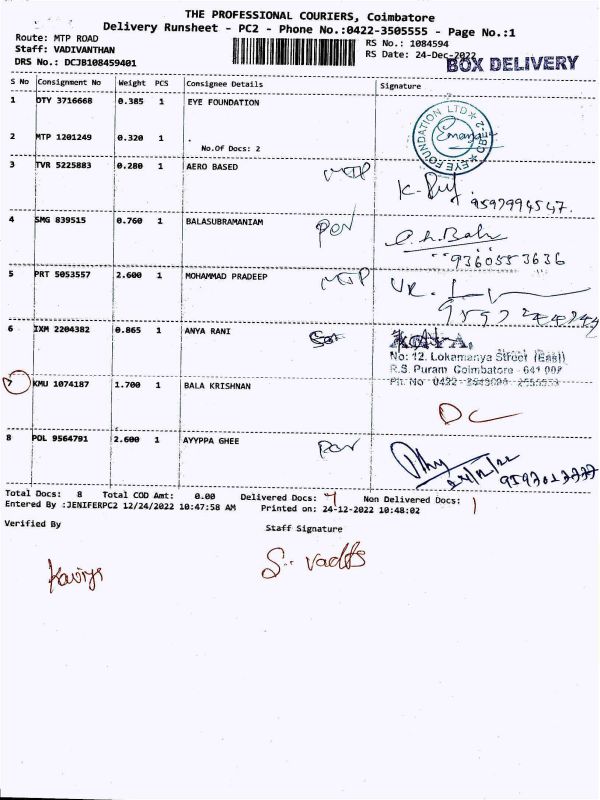 THE PROFESSIONAL COURIERS, Coimbatore
Delivery Runsheet - PC2 - Phone No.:0422-3505555 - Page No.:1
Route: MTP ROAD
RS No.: 1084594
Staff: VADIVANTHAN
RS Date: 24-Dec-2022
DRS No.: DCJB108459401
BOX DELIVERY
S No Consignment No Weight PCS Consignee Details Signature
1 DTY 3716668 0.385 1 EYE FOUNDATION
EYE FOUNDATION LTD CBE-2
2 MTP 1201249 0.320 1 .
No.Of Docs: 2
3 TVR 5225883 0.280 1 AERO BASED MTP
9597994547.
4 SMG 839515 0.760 1 BALASUBRAMANIAM
9360553636
5 PRT 5053557 2.600 1 MOHAMMAD PRADEEP MTP
6 IXM 2204382 0.865 1 ANYA RANI
No: 12. Lokamanya Street (East)
R.S. Puram Coimbatore - 641 002
7 KMU 1074187 1.700 1 BALA KRISHNAN
DC
8 POL 9564791 2.600 1 AYYPPA GHEE
24/12/22
Total Docs: 8 Total COD Amt: 0.00 Delivered Docs: 7 Non Delivered Docs: 1
Entered By :JENIFERPC2 12/24/2022 10:47:58 AM Printed on: 24-12-2022 10:48:02
Verified By Staff Signature